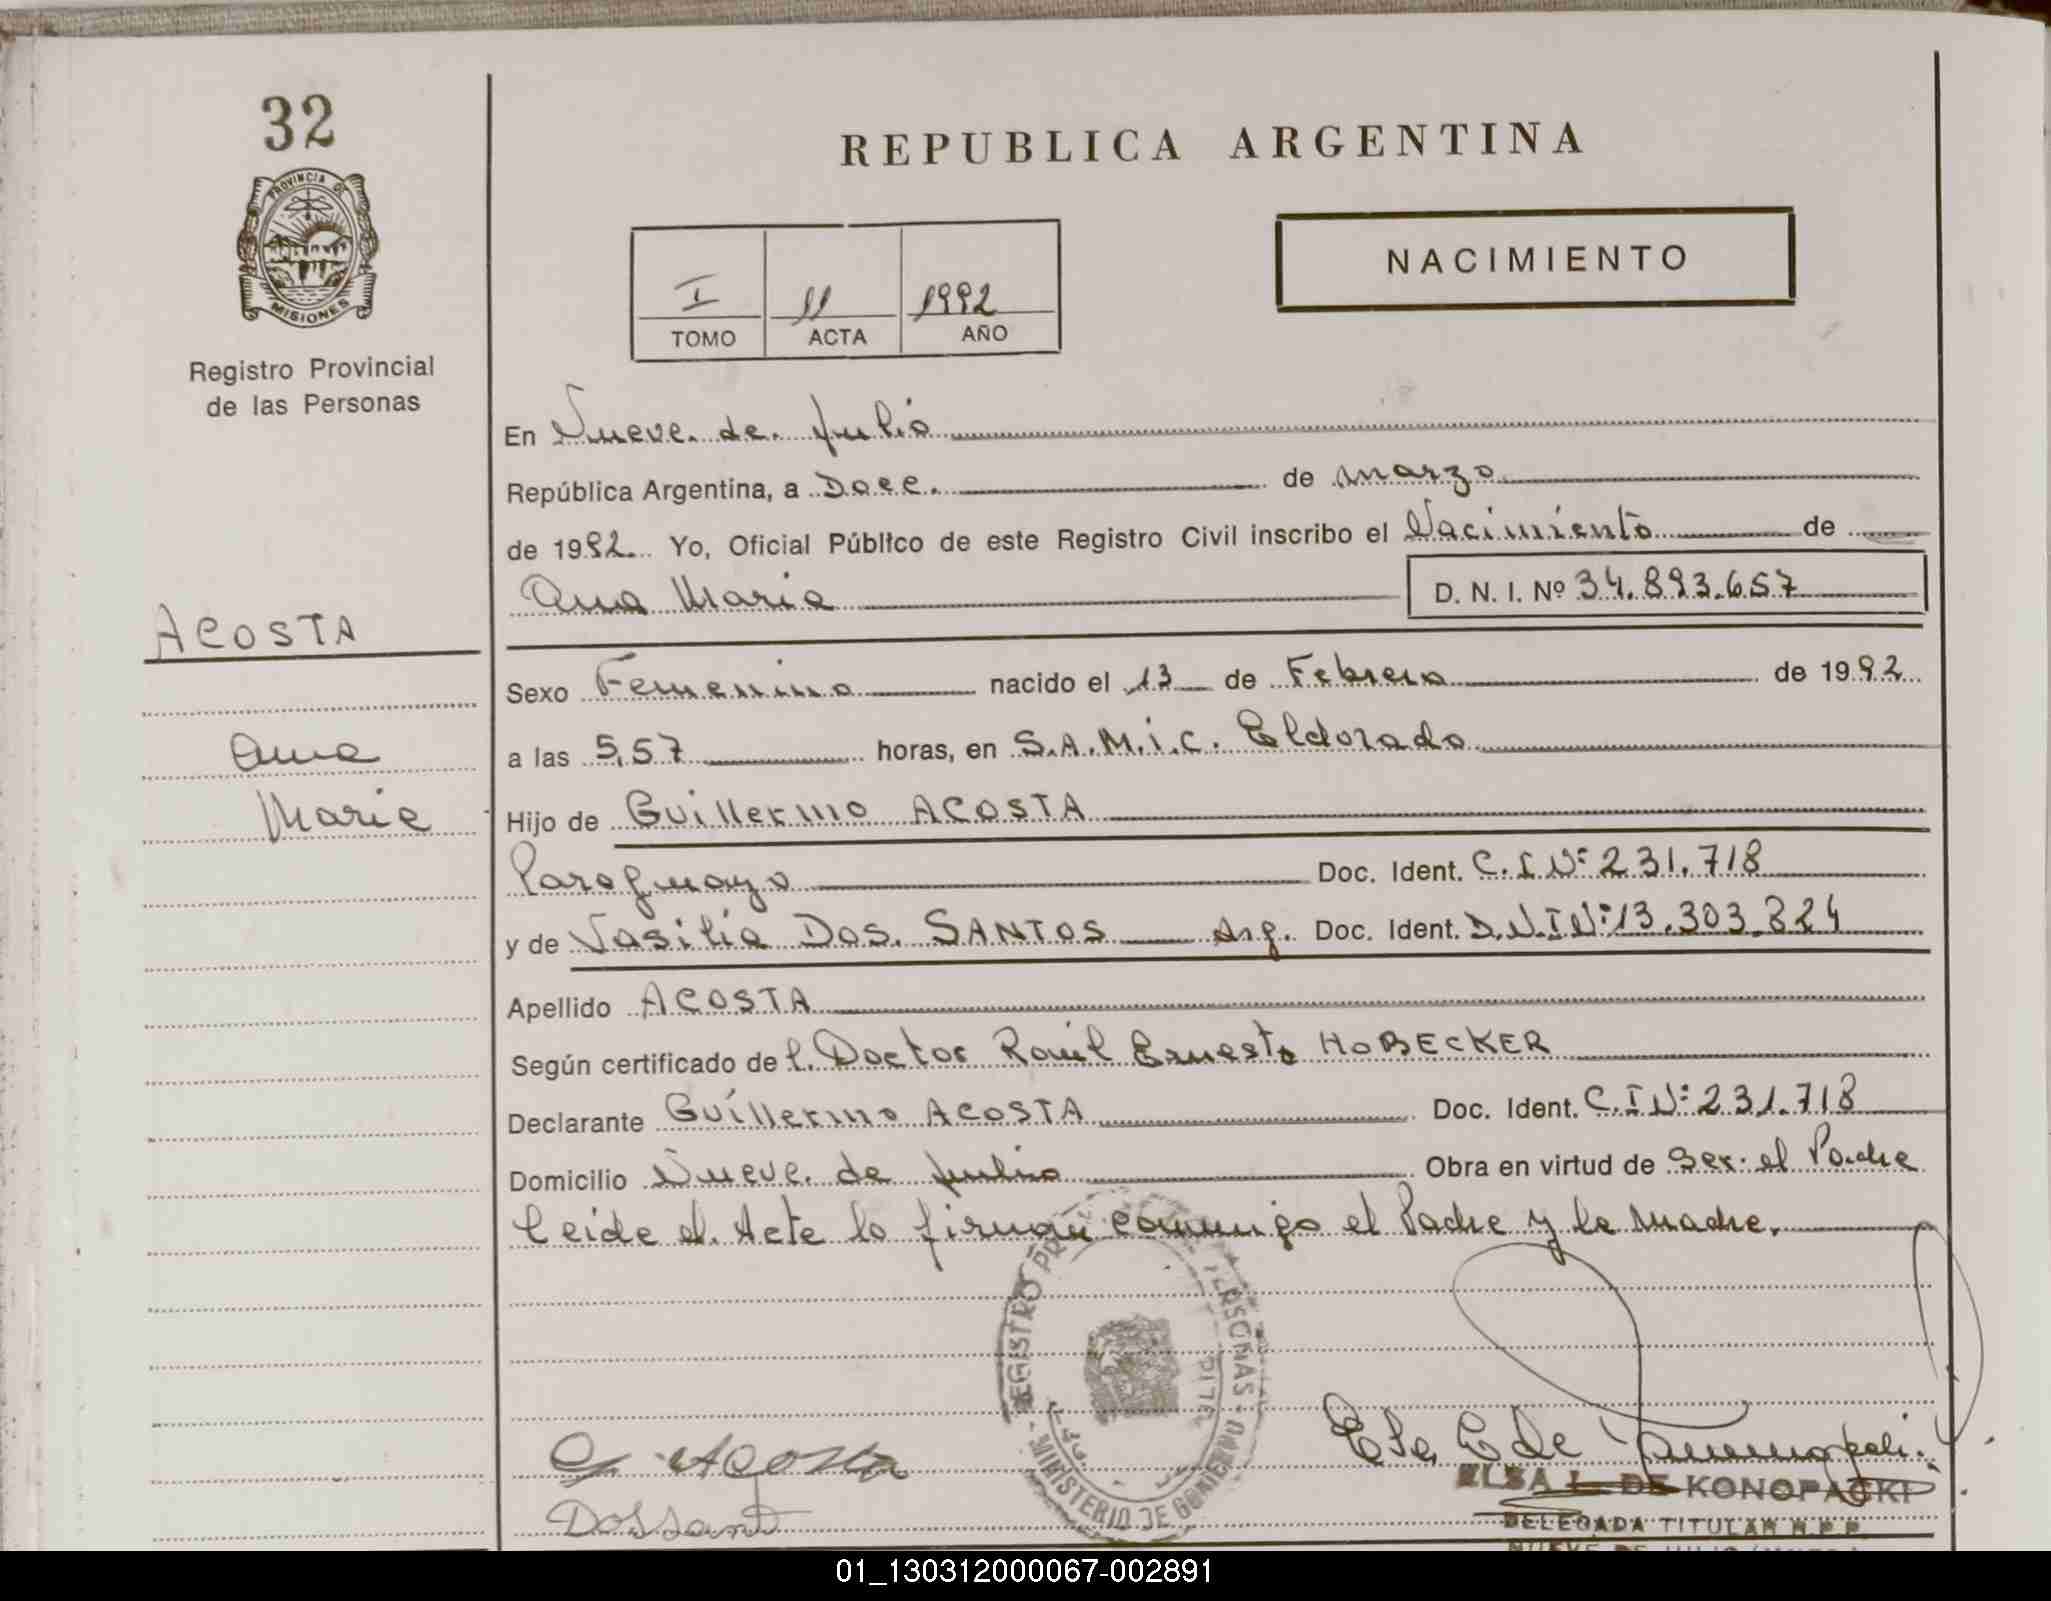 32
PROVINCIA DE
MISIONES
Registro Provincial
de las Personas
REPUBLICA ARGENTINA
NACIMIENTO
I 11 1992
TOMO ACTA AÑO
En Nueve de Julio
República Argentina, a Doce. de marzo
de 1992 Yo, Oficial Público de este Registro Civil inscribo el Nacimiento de
Ana Maria D. N. I. Nº 34.893.657
ACOSTA
Ana
Maria
Sexo Femenino nacido el 13 de Febrero de 1992
a las 5,57 horas, en S.A.M.i.C. Eldorado
Hijo de Guillermo ACOSTA
Paraguayo Doc. Ident. C.I.Nº 231.718
y de Vasilia Dos. SANTOS Arg. Doc. Ident. D.N.I Nº 13.303.824
Apellido ACOSTA
Según certificado de l. Doctor Raúl Ernesto HOBECKER
Declarante Guillermo ACOSTA Doc. Ident. C.I Nº 231.718
Domicilio Nueve de Julio Obra en virtud de Ser el Padre
Leida el Acta la firman conmigo el Padre y la Madre.
REGISTRO PERSONAS
MINISTERIO DE GOBIERNO
G. Acosta
Dossant
ELSA L. DE KONOPACKI
DELEGADA TITULAR R.P.P.
01_130312000067-002891